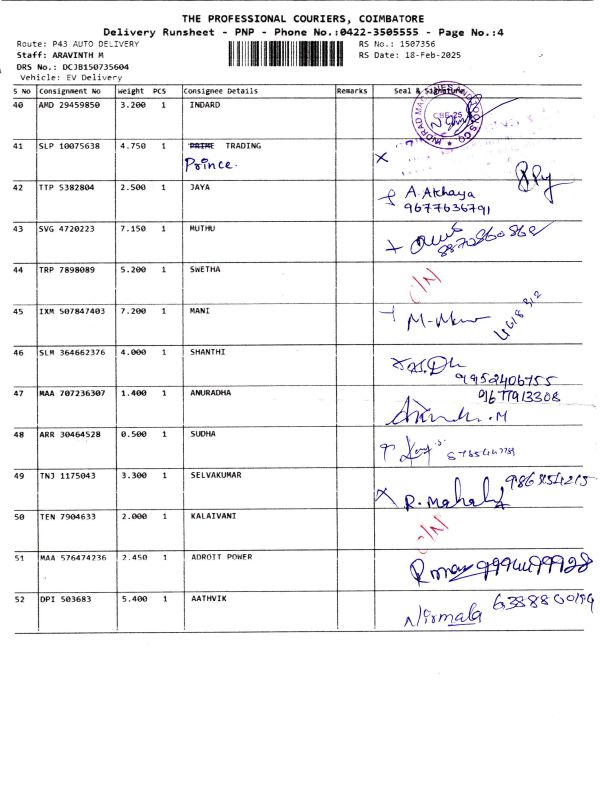 THE PROFESSIONAL COURIERS, COIMBATORE
Delivery Runsheet - PNP - Phone No.:0422-3505555 - Page No.:4
Route: P43 AUTO DELIVERY RS No.: 1507356
Staff: ARAVINTH M RS Date: 18-Feb-2025
DRS No.: DCJB150735604
Vehicle: EV Delivery
S No Consignment No Weight PCS Consignee Details Remarks Seal & Signature
40 AMD 29459850 3.200 1 INDARD
CBE-25
41 SLP 10075638 4.750 1 PRIME TRADING
Prince. X
42 TTP 5382804 2.500 1 JAYA A. Atchaya
9677636791
43 SVG 4720223 7.150 1 MUTHU
8870860868
44 TRP 7898089 5.200 1 SWETHA
45 IXM 507847403 7.200 1 MANI
46 SLM 364662376 4.000 1 SHANTHI
9952406755
47 MAA 707236307 1.400 1 ANURADHA 9677913308
48 ARR 30464528 0.500 1 SUDHA
49 TNJ 1175043 3.300 1 SELVAKUMAR
X R. Mahaly
50 TEN 7904633 2.000 1 KALAIVANI
51 MAA 576474236 2.450 1 ADROIT POWER
52 DPI 503683 5.400 1 AATHVIK
Nirmala